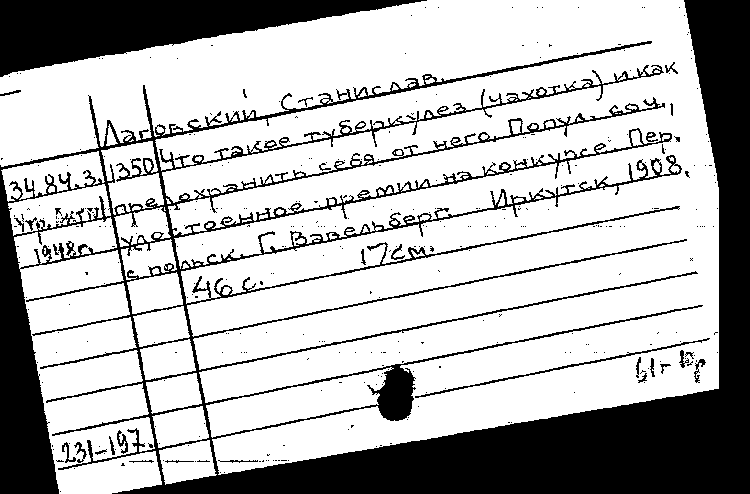 Лаговский, Станислав.
34.84.3. 1350 Что такое туберкулез (чахотка) и как
предохранить себя от него. Попул. соч.,
удостоенное премии на конкурсе. Пер.
1948г. с польск. Г. Вавельберг. Иркутск, 1908.
46 с. 17см.
231-197.